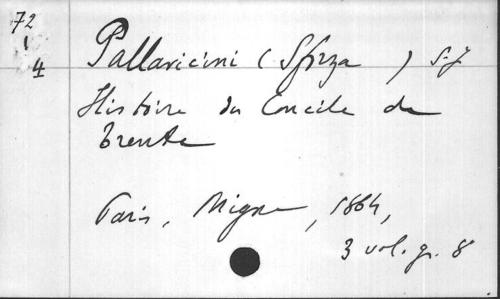 72
1
4
Pallavicini (Sforza) S.J
Histoire du Concile de
Trente
Paris, Migne, 1864,
3 vol. gr. 8